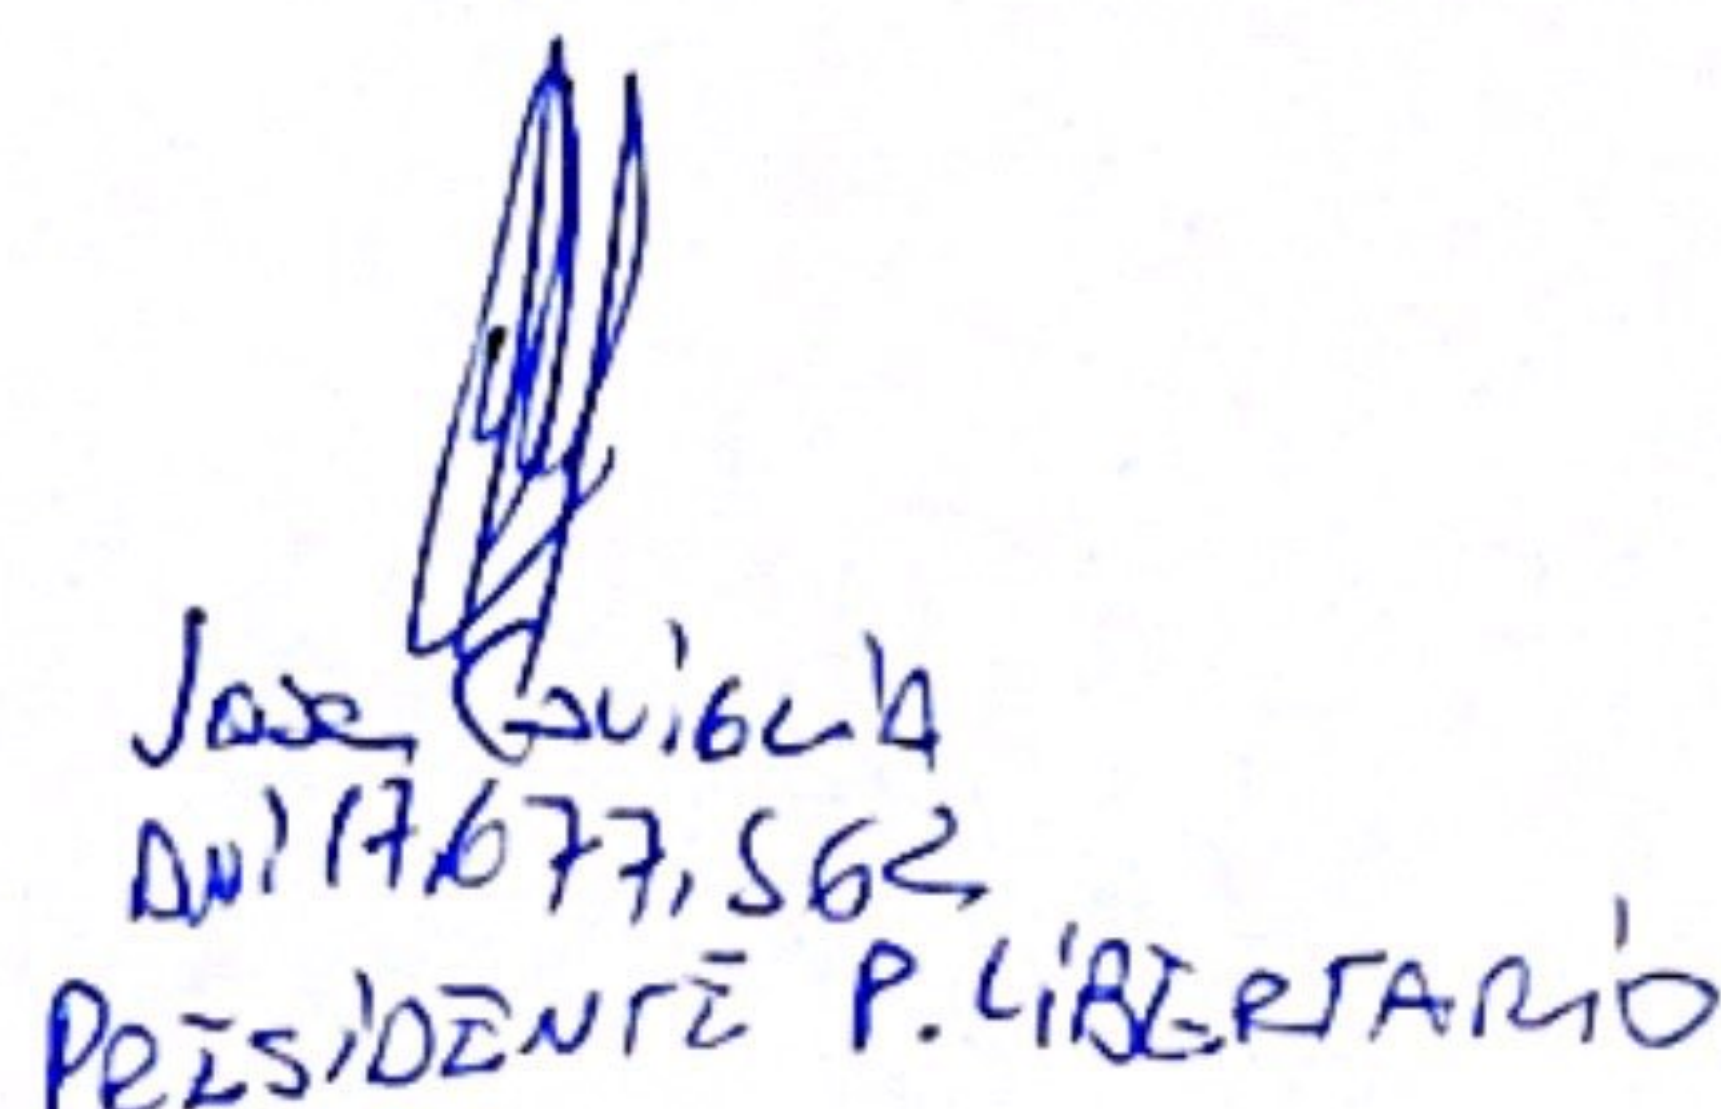 Jose Caviglia
DNI 17.677.562
PRESIDENTE P. LIBERTARIO